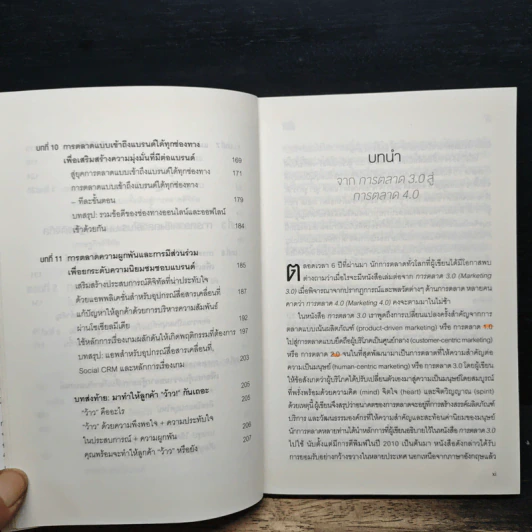 บทที่ 10 การตลาดแบบเข้าถึงแบรนด์ได้ทุกช่องทาง
เพื่อเสริมสร้างความมุ่งมั่นที่มีต่อแบรนด์ 169
สู่ยุคการตลาดแบบเข้าถึงแบรนด์ได้ทุกช่องทาง 171
การตลาดแบบเข้าถึงแบรนด์ได้ทุกช่องทาง
– ทีละขั้นตอน 179
บทสรุป: รวมข้อดีของช่องทางออนไลน์และออฟไลน์
เข้าด้วยกัน 184
บทที่ 11 การตลาดความผูกพันและการมีส่วนร่วม
เพื่อยกระดับความนิยมชมชอบแบรนด์ 185
เสริมสร้างประสบการณ์ดิจิทัลที่น่าประทับใจ
ด้วยแอพพลิเคชั่นสำหรับอุปกรณ์สื่อสารเคลื่อนที่ 187
แก้ปัญหาให้ลูกค้าด้วยการบริหารความสัมพันธ์
ผ่านโซเชียลมีเดีย 191
ใช้หลักการเรื่องเกมผลักดันให้เกิดพฤติกรรมที่ต้องการ 195
บทสรุป: แอพสำหรับอุปกรณ์สื่อสารเคลื่อนที่,
Social CRM และหลักการเรื่องเกม 200
บทส่งท้าย: มาทำให้ลูกค้า "ว้าว!" กันเถอะ
"ว้าว" คืออะไร
"ว้าว" ด้วยความพึงพอใจ + ความประทับใจ
ในประสบการณ์ + ความผูกพัน
คุณพร้อมจะทำให้ลูกค้า "ว้าว" หรือยัง 207
บทนำ
จาก การตลาด 3.0 สู่
การตลาด 4.0
ตลอดเวลา 6 ปีที่ผ่านมา นักการตลาดทั่วโลกที่ผู้เขียนได้มีโอกาสพบ
ต่างถามว่าเมื่อไรจะมีหนังสือเล่มต่อจาก การตลาด 3.0 (Marketing
3.0) เมื่อพิจารณาจากปรากฏการณ์และพลวัตต่างๆ ด้านการตลาด หลายคน
คาดว่า การตลาด 4.0 (Marketing 4.0) คงจะตามมาในไม่ช้า
ในหนังสือ การตลาด 3.0 เราพูดถึงการเปลี่ยนแปลงครั้งสำคัญจากการ
ตลาดแบบเน้นผลิตภัณฑ์ (product-driven marketing) หรือ การตลาด 1.0
ไปสู่การตลาดแบบยึดถือผู้บริโภคเป็นศูนย์กลาง (customer-centric marketing)
หรือ การตลาด 2.0 จนในที่สุดพัฒนามาเป็นการตลาดที่ให้ความสำคัญต่อ
ความเป็นมนุษย์ (human-centric marketing) หรือ การตลาด 3.0 โดยผู้เขียน
ให้ข้อสังเกตว่าผู้บริโภคได้ปรับเปลี่ยนตัวเองมาสู่ความเป็นมนุษย์โดยสมบูรณ์
ที่พรั่งพร้อมด้วยความคิด (mind) จิตใจ (heart) และจิตวิญญาณ (spirit)
ด้วยเหตุนี้ ผู้เขียนจึงสรุปว่าอนาคตของการตลาดจะอยู่ที่การสร้างสรรค์ผลิตภัณฑ์
บริการ และวัฒนธรรมองค์กรที่ให้ความสำคัญและสะท้อนค่านิยมของมนุษย์
นักการตลาดหลายท่านได้นำหลักการที่ผู้เขียนอธิบายไว้ในหนังสือ การตลาด 3.0
ไปใช้ นับตั้งแต่มีการตีพิมพ์ในปี 2010 เป็นต้นมา หนังสือดังกล่าวได้รับ
การยอมรับอย่างกว้างขวางในหลายประเทศ นอกเหนือจากภาษาอังกฤษแล้ว